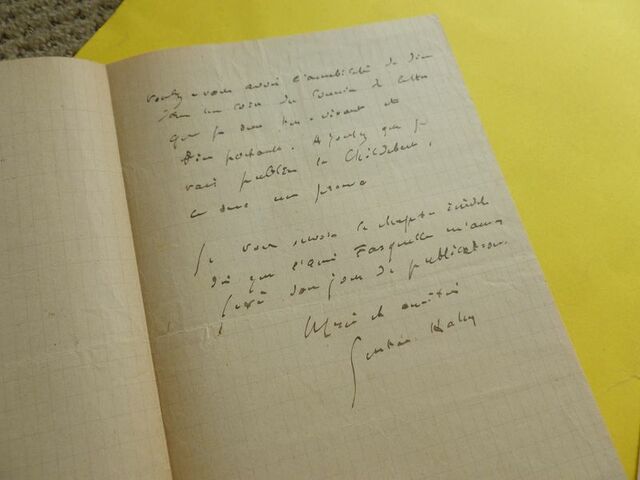 voulez-vous avoir l'amabilité de dire
dans un coin du Courrier de
que je suis bien vivant et
bien portant. Ajoutez que je
vais publier la Childebert,
ce sera une preuve
Je vous enverrai le chapitre inédit
dès que l'ami Fasquelle m'aura
fixé son jour de publication.
Merci et amitiés
Gustave Kahn